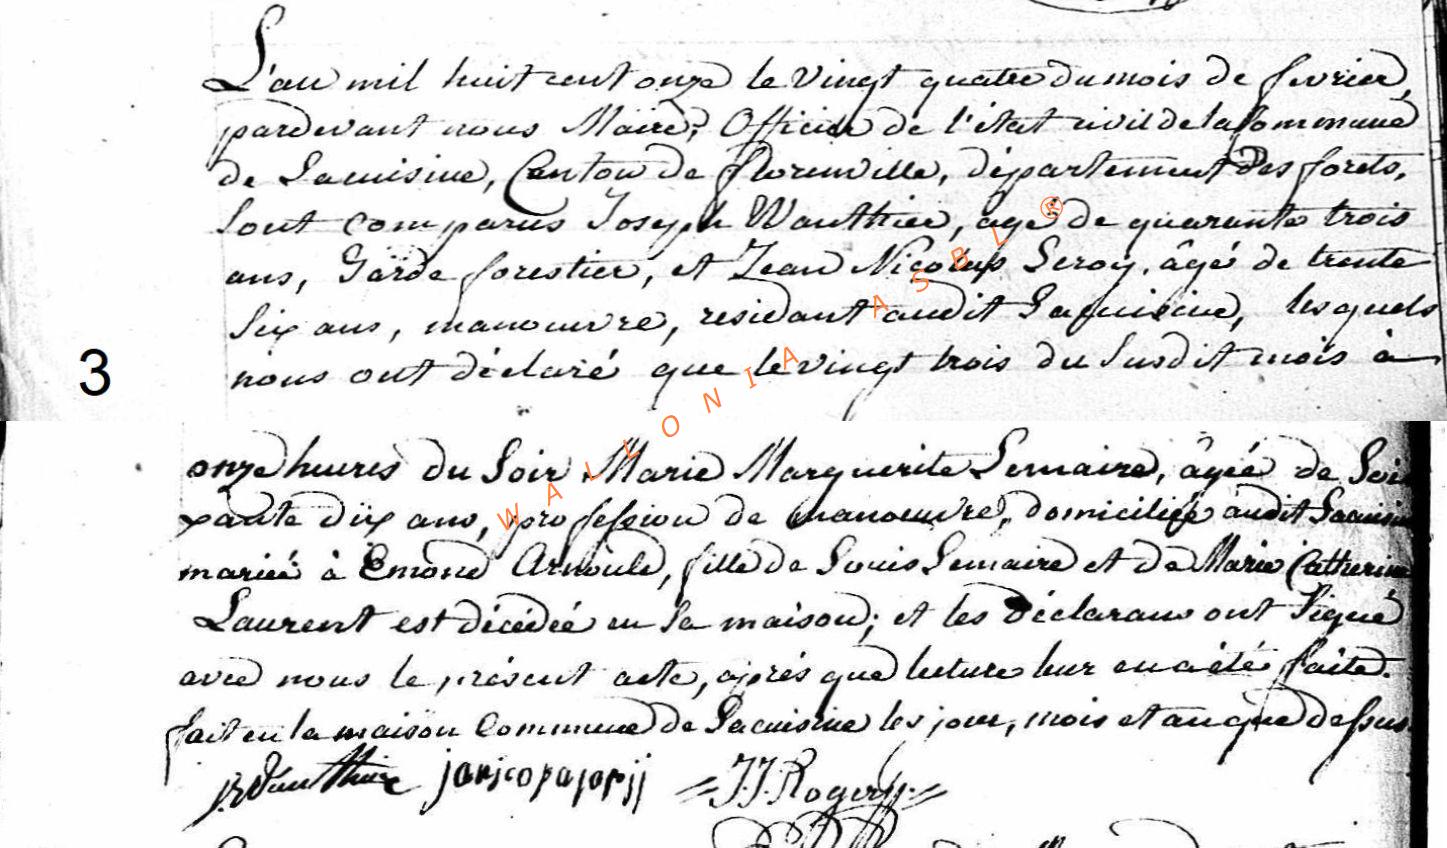 L'an mil huit cent onze le vingt quatre du mois de fevrier,
pardevant nous Maire, Officier de l'état civil de la Commune
de Lacuisine, Canton de florenville, département des forets,
sont comparus Joseph Wauthier, âgé de quarante trois
ans, Garde forestier, et Jean Nicolas Leroy, âgé de trente
six ans, manouvre, residant audit Lacuisine, lesquels
3
nous ont déclaré que le vingt trois du susdit mois à
onze heures du soir Marie Marguerite Lemaire, âgée de Soi
xante dix ans, profession de manouvre, domiciliée audit Lacuisine
mariée à Emond Arnould, fille de Louis Lemaire et de Marie Catherine
Laurent est décédée en sa maison; et les déclarans ont signé
avec nous le présent acte, après que lecture leur en a été faite.
fait en la maison Commune de Lacuisine les jour, mois et an que dessus.
J. Wauthier J. J. Rogery
WALLONIA ASBL ®